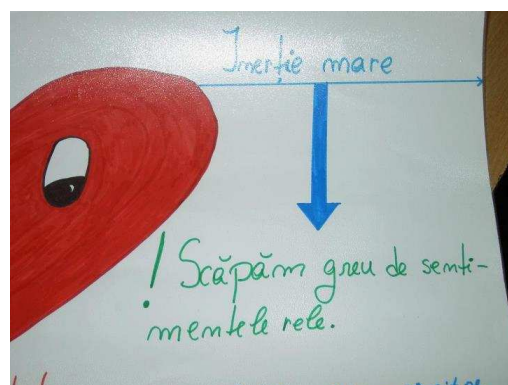 Inerție mare
! Scăpăm greu de senti-
mentele rele.